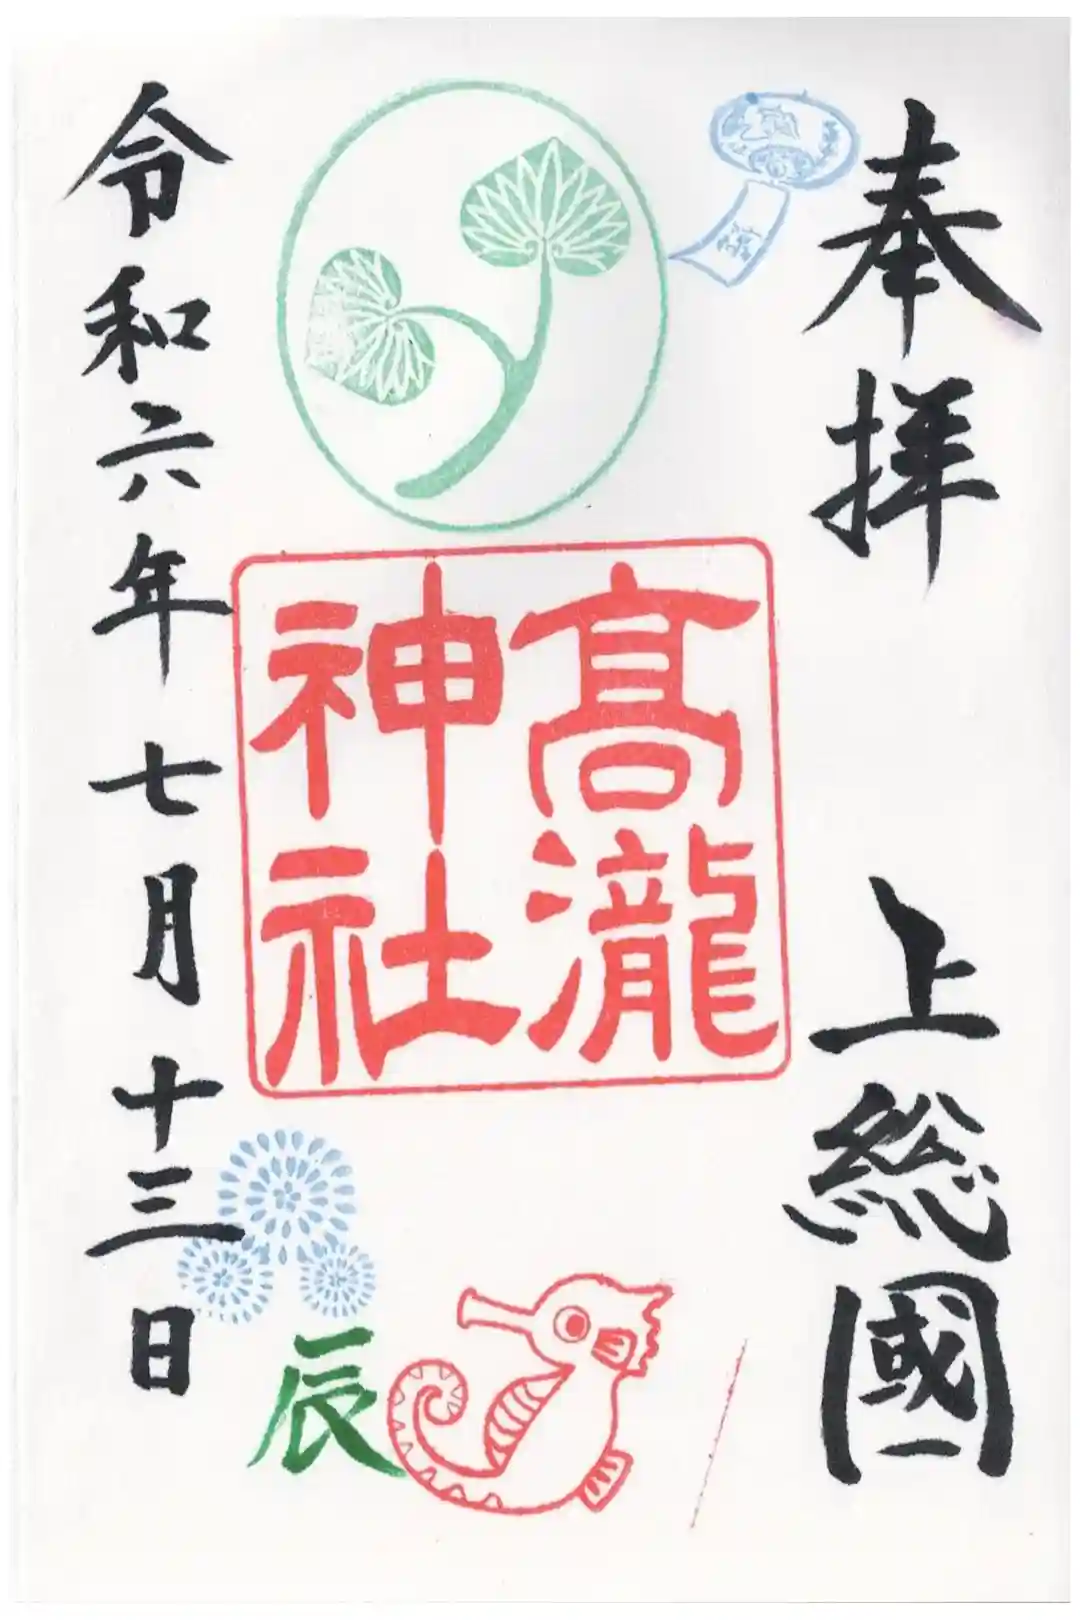 奉拝 上総國
髙瀧
神社
令和六年七月十三日
辰